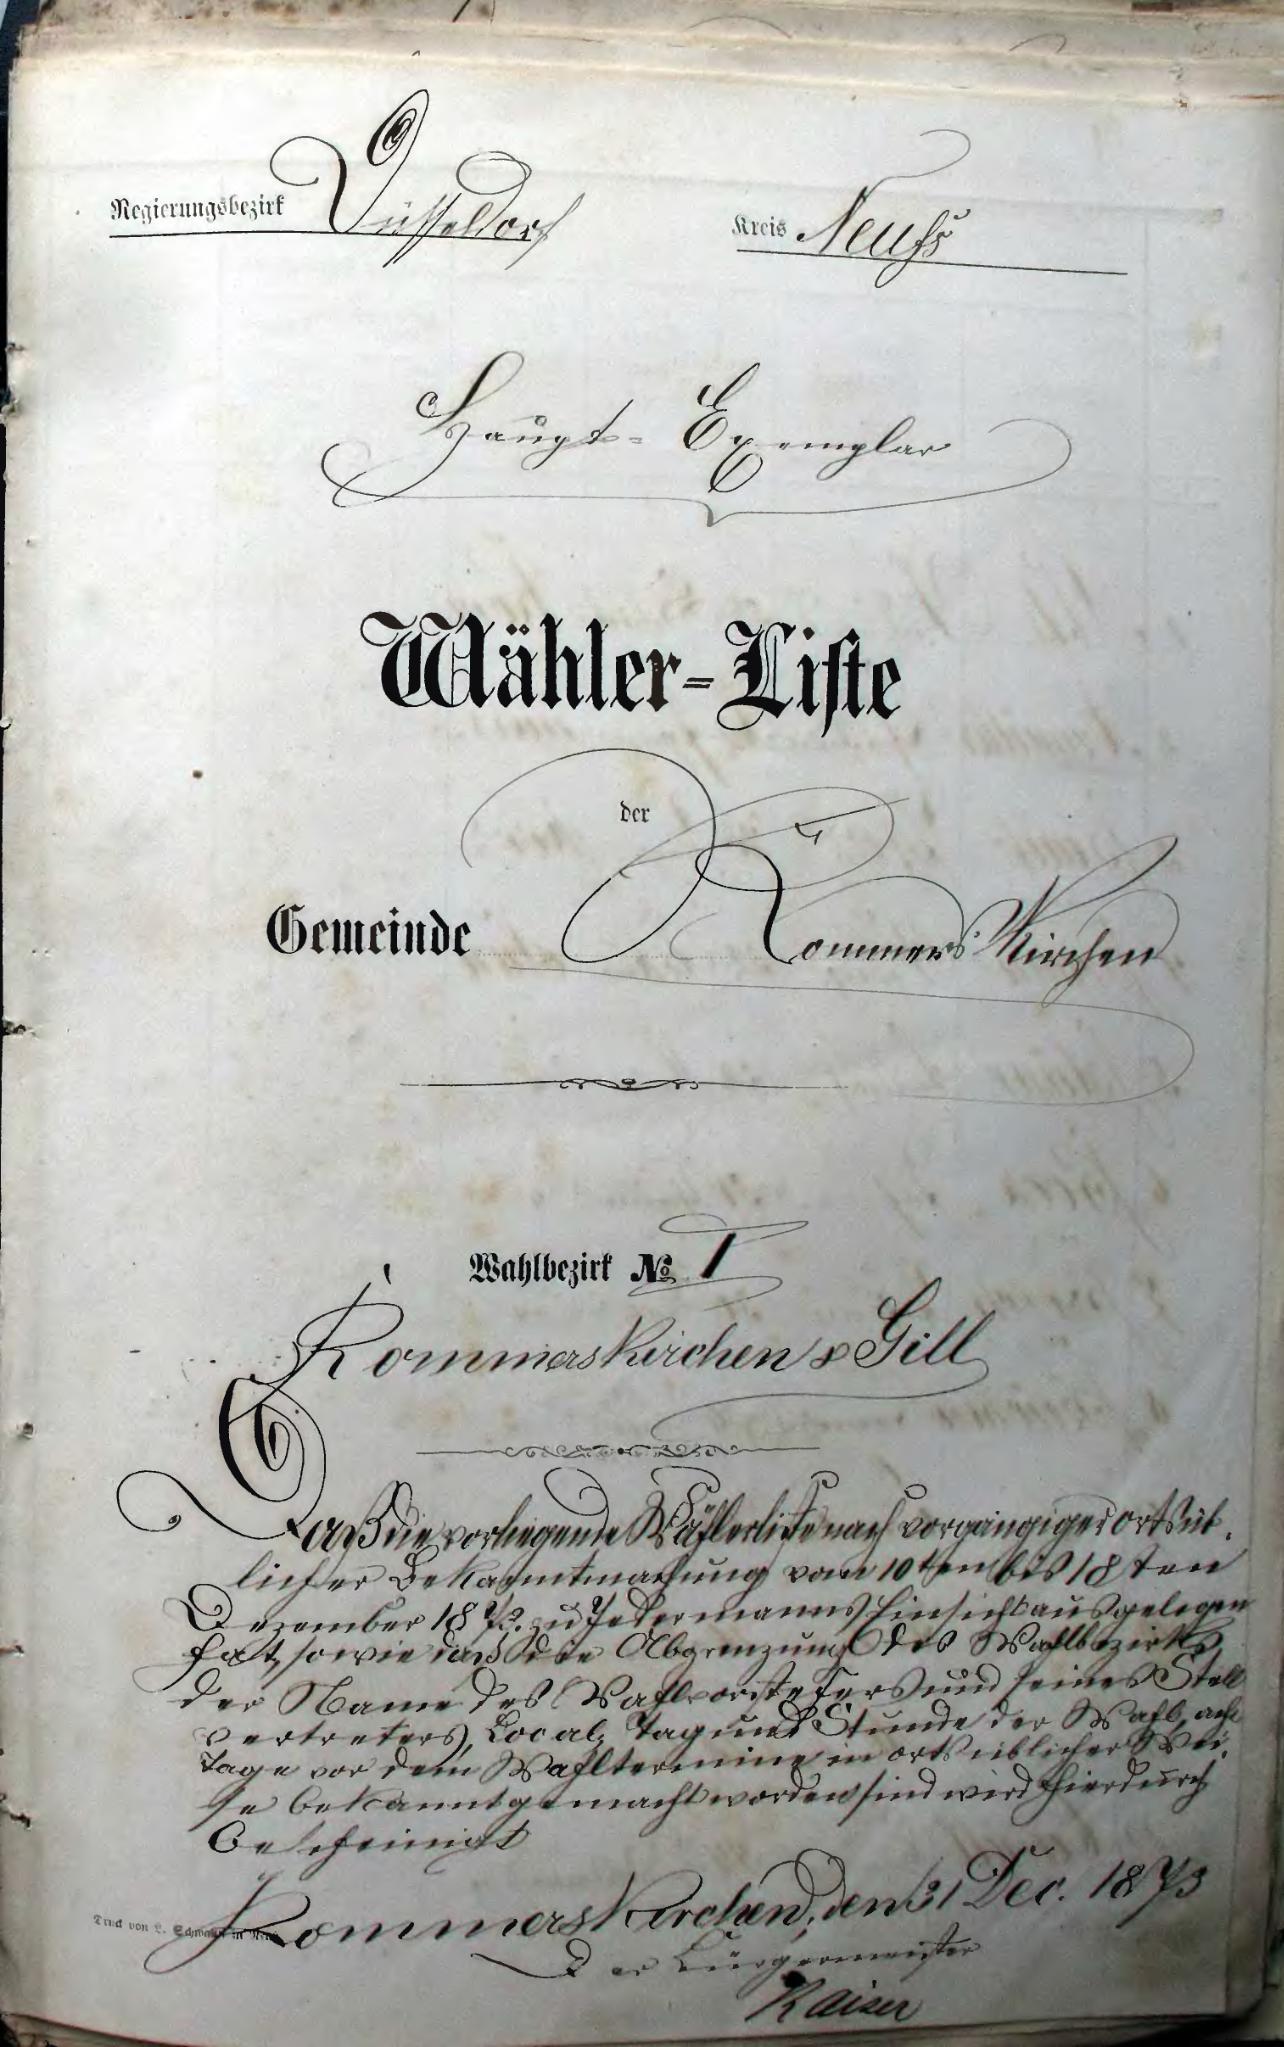 Regierungsbezirk Düsseldorf Kreis Neuß
Haupt-Exemplar
Wähler-Liste
der
Gemeinde Rommerskirchen
Wahlbezirk No I
Rommerskirchen & Gill
Daß die vorliegende Wählerliste nach vorgängiger ortsüb-
licher Bekanntmachung vom 10ten bis 18ten
Dezember 1873. zu Jedermanns Einsicht ausgelegen
hat, sowie daß die Abgrenzung des Wahlbezirks,
der Name des Wahlvorstehers und seines Stell
vertreters, Local, Tag und Stunde der Wahl, acht
Tage vor dem Wahltermine in ortsüblicher Wei-
se bekannt gemacht worden sind wird hierdurch
bescheinigt
Rommerskirchen, den 31 Dec. 1873
Der Bürgermeister
Kaiser
Druck von L. Schwann in